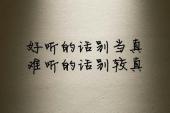 好听的话别当真
难听的话别较真